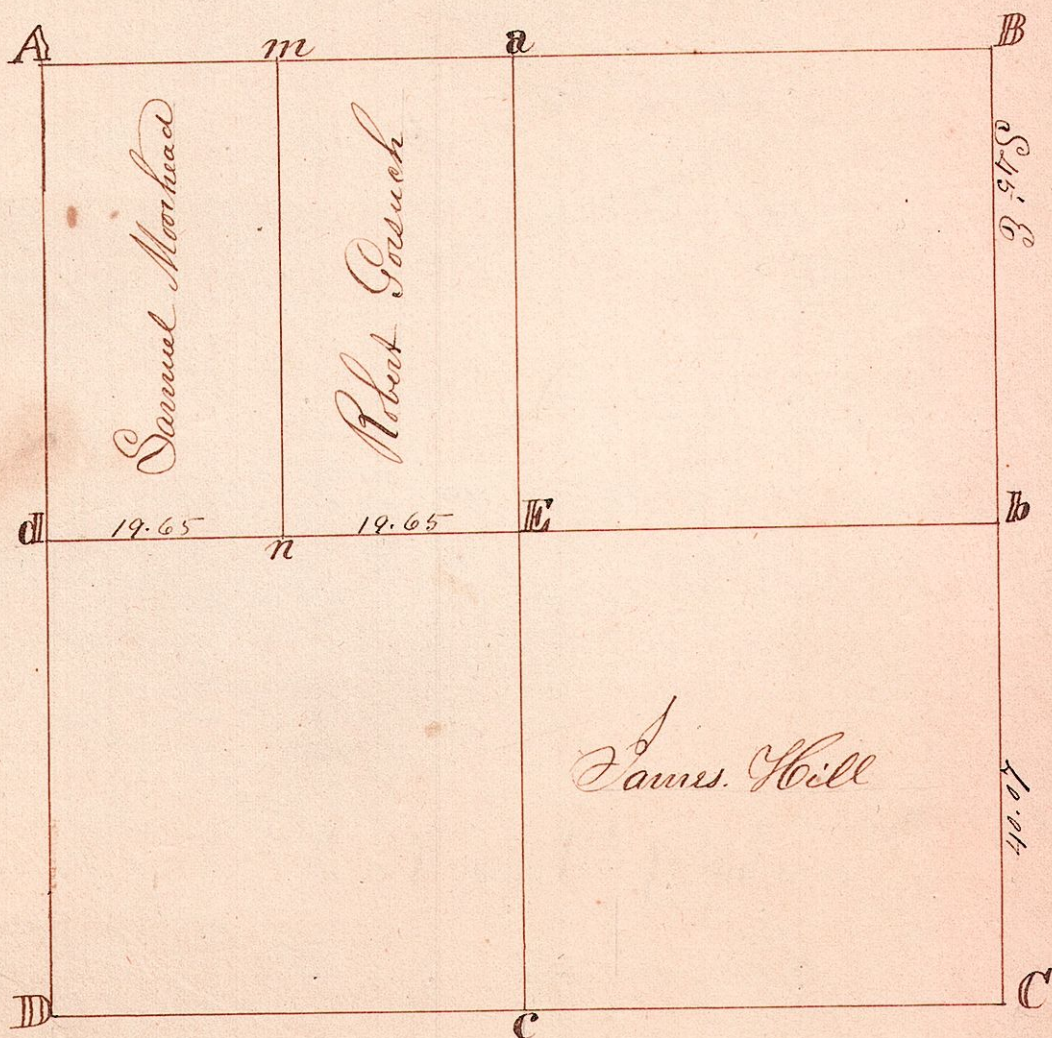 A m a B
Samuel Moorhead
Robert Gorsuch
S 45' E
d 19.65 n 19.65 E b
James. Hill
40.04
D c C